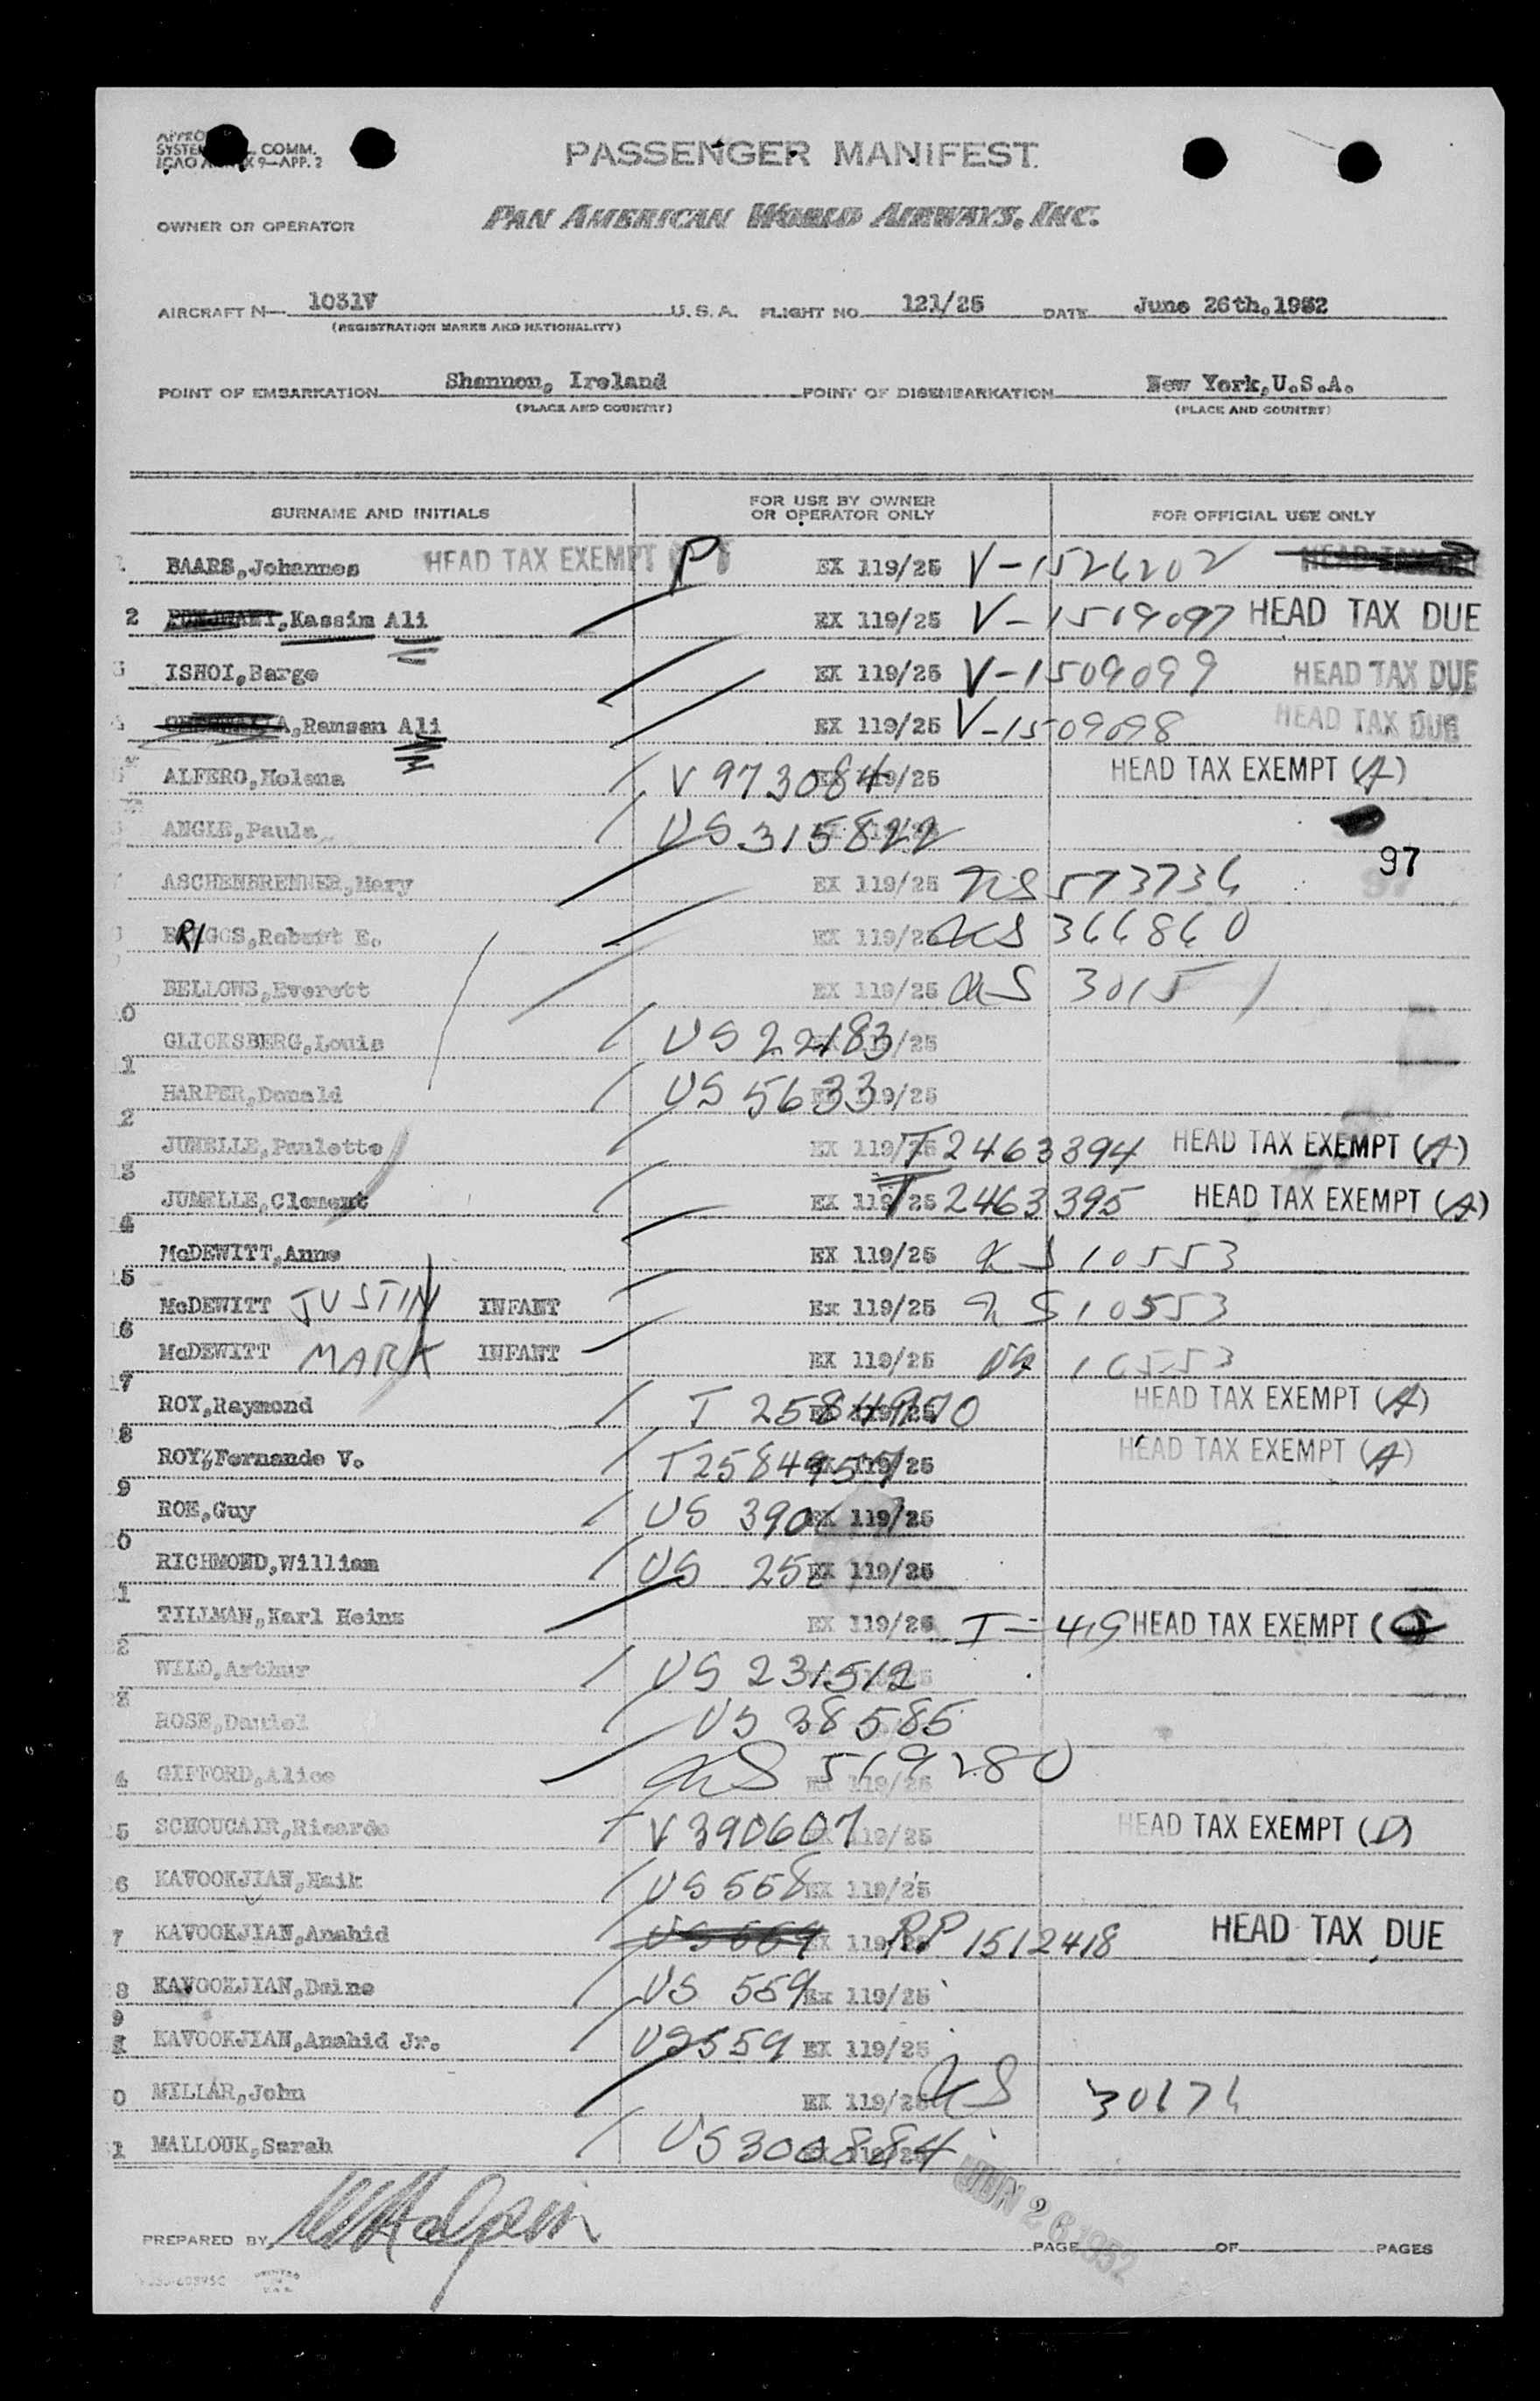 SYSTEM COMM.
ICAO ANNEX 9—APP. 2
PASSENGER MANIFEST
OWNER OR OPERATOR PAN AMERICAN WORLD AIRWAYS, INC.
AIRCRAFT N— 1031V U. S. A. FLIGHT NO. 121/25 DATE June 26th.1952
(REGISTRATION MARKS AND NATIONALITY)
POINT OF EMBARKATION Shannon, Ireland POINT OF DISEMBARKATION New York,U.S.A.
(PLACE AND COUNTRY) (PLACE AND COUNTRY)
SURNAME AND INITIALS FOR USE BY OWNER OR OPERATOR ONLY FOR OFFICIAL USE ONLY
1 BAARS,Johannes HEAD TAX EXEMPT P EX 119/25 V-1526202 HEAD TAX
2 ,Kassim Ali EX 119/25 V-1509097 HEAD TAX DUE
3 ISHOI,Barge EX 119/25 V-1509099 HEAD TAX DUE
4 ,Ramsan Ali EX 119/25 V-1509098 HEAD TAX DUE
5 ALFERO,Molena V 973084 EX 119/25 HEAD TAX EXEMPT (A)
6 ANGLE,Paula US 315822
97
7 ASCHENBRENNER,Mary EX 119/25 US 573736
RI
BRIGGS,Robert E. EX 119/25 US 366860
BELLOWS,Everett EX 119/25 US 3015
0 GLICKSBERG,Louis US 22183 EX 119/25
1 HARPER,Donald US 5633 EX 119/25
2 JUMELLE,Paulette EX 119/25 T 2463394 HEAD TAX EXEMPT (A)
3 JUMELLE,Clement EX 119/25 T 2463395 HEAD TAX EXEMPT (A)
4 McDEWITT,Anne EX 119/25 US 10553
5 McDEWITT JUSTIN INFANT Ex 119/25 US 10553
6 McDEWITT MARK INFANT EX 119/25 US 10553
7 ROY,Raymond T 2584970 EX 119/25 HEAD TAX EXEMPT (A)
8 ROY,Fernande V. EX 119/25 HEAD TAX EXEMPT (A)
9 ROE,Guy US EX 119/25
0 RICHMOND,William US EX 119/25
1 TILLMAN,Karl Heinz EX 119/25 I-419 HEAD TAX EXEMPT
2 WILD,Arthur US 231512
3 ROSE,Daniel US 38585
4 GIFFORD,Alice US 519280 EX 119/25
5 SCHOUCAIR,Ricardo V 390607 EX 119/25 HEAD TAX EXEMPT (D)
6 KAVOOKJIAN,Haik US 558 EX 119/25
7 KAVOOKJIAN,Anahid US 559 EX 119/25 PP 1512418 HEAD TAX DUE
8 KAVOOKJIAN,Daine US 559 Ex 119/25
9 KAVOOKJIAN,Anahid Jr. US 559 EX 119/25
0 MILLAR,John EX 119/25 US 30676
1 MALLOUK,Sarah US 300884 EX 119/25
JUN 26 1952
PREPARED BY PAGE OF PAGES
PRINTED IN U.S.A.